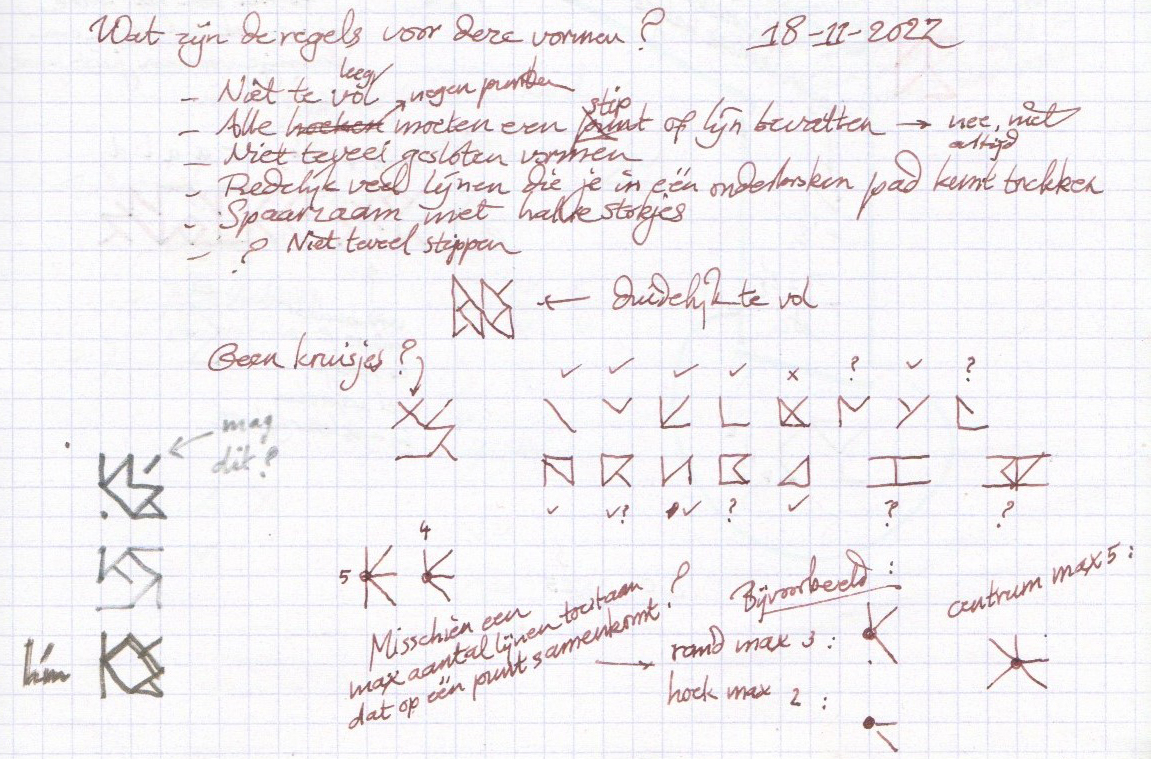 Wat zijn de regels voor deze vormen? 18-11-2022
- Niet te vol leeg
- Alle hoeken negen punten moeten een punt stip of lijn bevatten → nee, niet altijd
- Niet teveel gesloten vormen
- Redelijk veel lijnen die je in één onderbroken pad kunt trekken
- Spaarzaam met halve stokjes
- ? Niet teveel stippen
← duidelijk te vol
Geen kruisjes?
✓ ✓ ✓ ✓ x ? ✓ ?
mag
dit?
✓ ✓? ✓ ? ✓ ? ?
5 4
Misschien een
max aantal lijnen toestaan
dat op één punt samenkomt?
Bijvoorbeeld:
→ rand max 3:
hoek max 2:
centrum max 5: